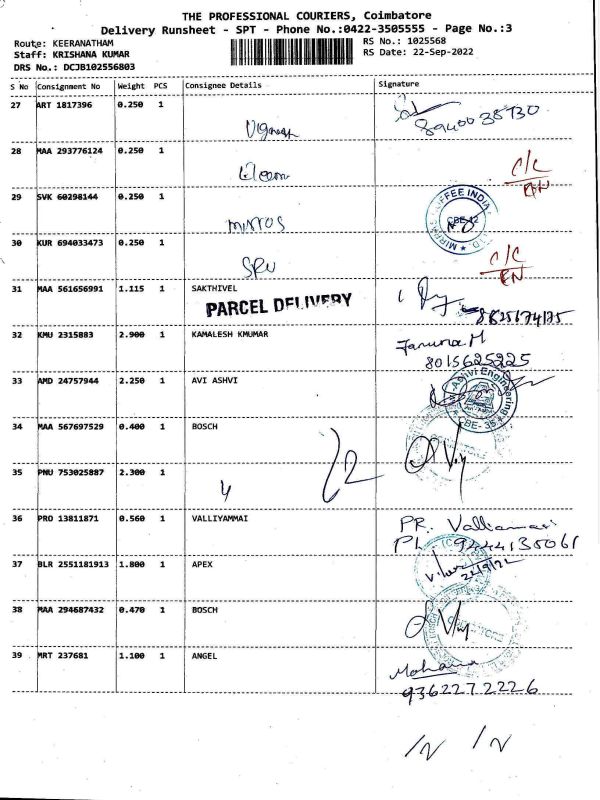 THE PROFESSIONAL COURIERS, Coimbatore
Delivery Runsheet - SPT - Phone No.:0422-3505555 - Page No.:3
Route: KEERANATHAM
RS No.: 1025568
Staff: KRISHANA KUMAR
RS Date: 22-Sep-2022
DRS No.: DCJB102556803
S No Consignment No Weight PCS Consignee Details Signature
27 ART 1817396 0.250 1
Vignesh
28 MAA 293776124 0.250 1
C/C
29 SVK 60298144 0.250 1
COFFEE INDIA
CBE-42
30 KUR 694033473 0.250 1
C/C
31 MAA 561656991 1.115 1 SAKTHIVEL
PARCEL DELIVERY
32 KMU 2315883 2.900 1 KAMALESH KMUMAR
8015625225
33 AMD 24757944 2.250 1 AVI ASHVI
Ashvi Engineering
CBE- 35
34 MAA 567697529 0.400 1 BOSCH
35 PNU 753025887 2.300 1
36 PRO 13811871 0.560 1 VALLIYAMMAI
PR. Valliammai
PL. 9444135061
37 BLR 2551181913 1.800 1 APEX
22/9/22
38 MAA 294687432 0.470 1 BOSCH
39 MRT 237681 1.100 1 ANGEL
Mohana
9362272226